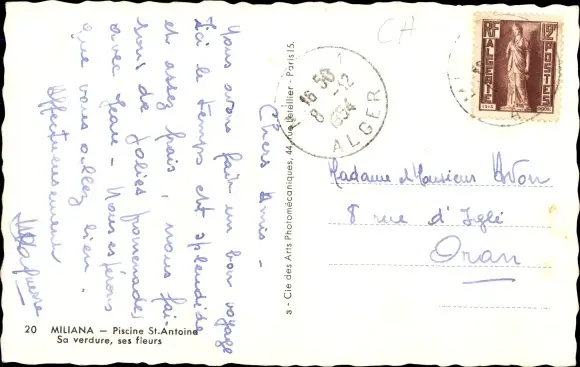 Chers Amis -
Nous avons fait un bon voyage
Ici le temps est splendide
et assez frais, nous fai-
sons de jolies promenades
avec Jean - Nous espérons
que vous allez bien.
Affectueusement
20 MILIANA — Piscine St-Antoine
Sa verdure, ses fleurs
3 - Cie des Arts Photomécaniques, 44, rue Letellier - Paris 15.
CH
16 30
8 -12
ALGER
RF
ALGERIE
12F
POSTES
Madame et Monsieur Avon
8 rue d'Igli
Oran